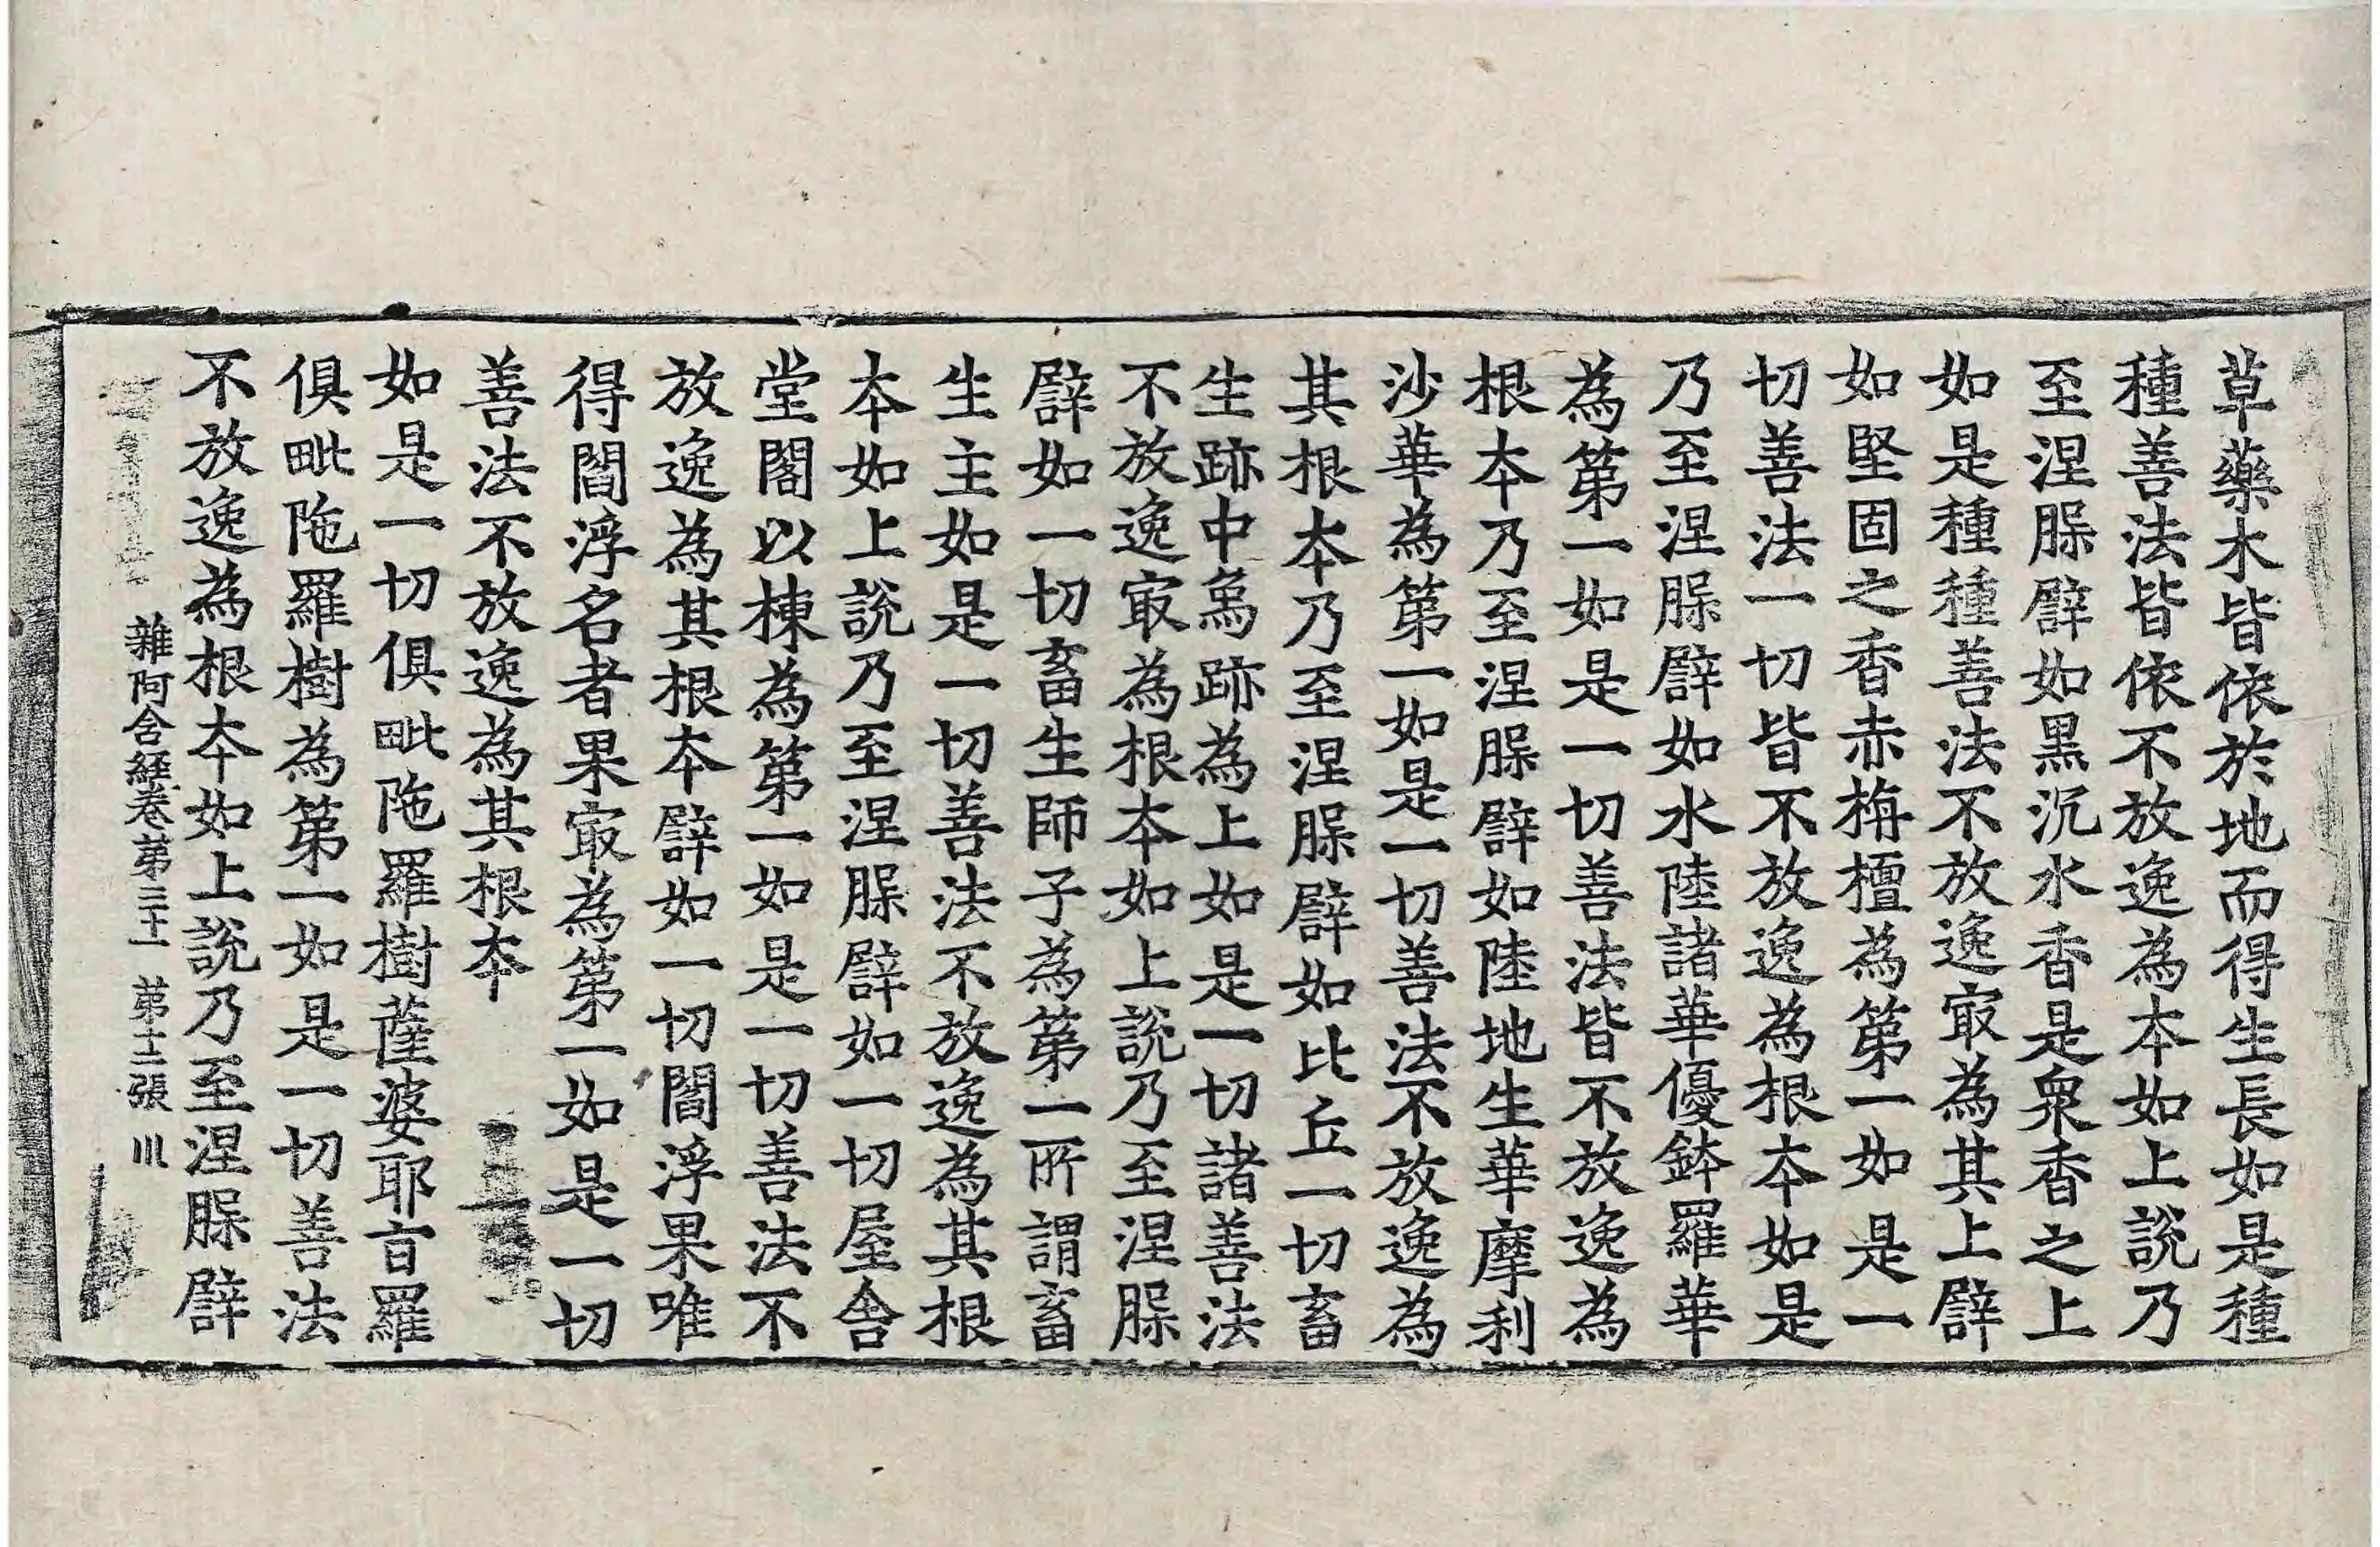 草藥木皆依於地而得生長如是種
種善法皆依不放逸為本如上說乃
至涅脲譬如黑沉水香是衆香之上
如是種種善法不放逸㝡為其上譬
如堅固之香赤栴檀為第一如是一
切善法一切皆不放逸為根夲如是
乃至涅脲譬如水陸諸華優鉢羅華
為第一如是一切善法皆不放逸為
根夲乃至涅脲譬如陸地生華摩利
沙華為第一如是一切善法不放逸為
其根夲乃至涅脲譬如比丘一切畜
生跡中象跡為上如是一切諸善法
不放逸㝡為根夲如上說乃至涅脲
譬如一切畜生師子為第一所謂畜
生主如是一切善法不放逸為其根
夲如上說乃至涅脲譬如一切屋舍
堂閣以棟為第一如是一切善法不
放逸為其根夲譬如一切閻浮果唯
得閻浮名者果㝡為第一如是一切
善法不放逸為其根夲
如是一切俱毗陁羅樹薩婆耶旨羅
俱毗陁羅樹為第一如是一切善法
不放逸為根夲如上說乃至涅脲譬
雜阿含經卷第三十一 第十二張